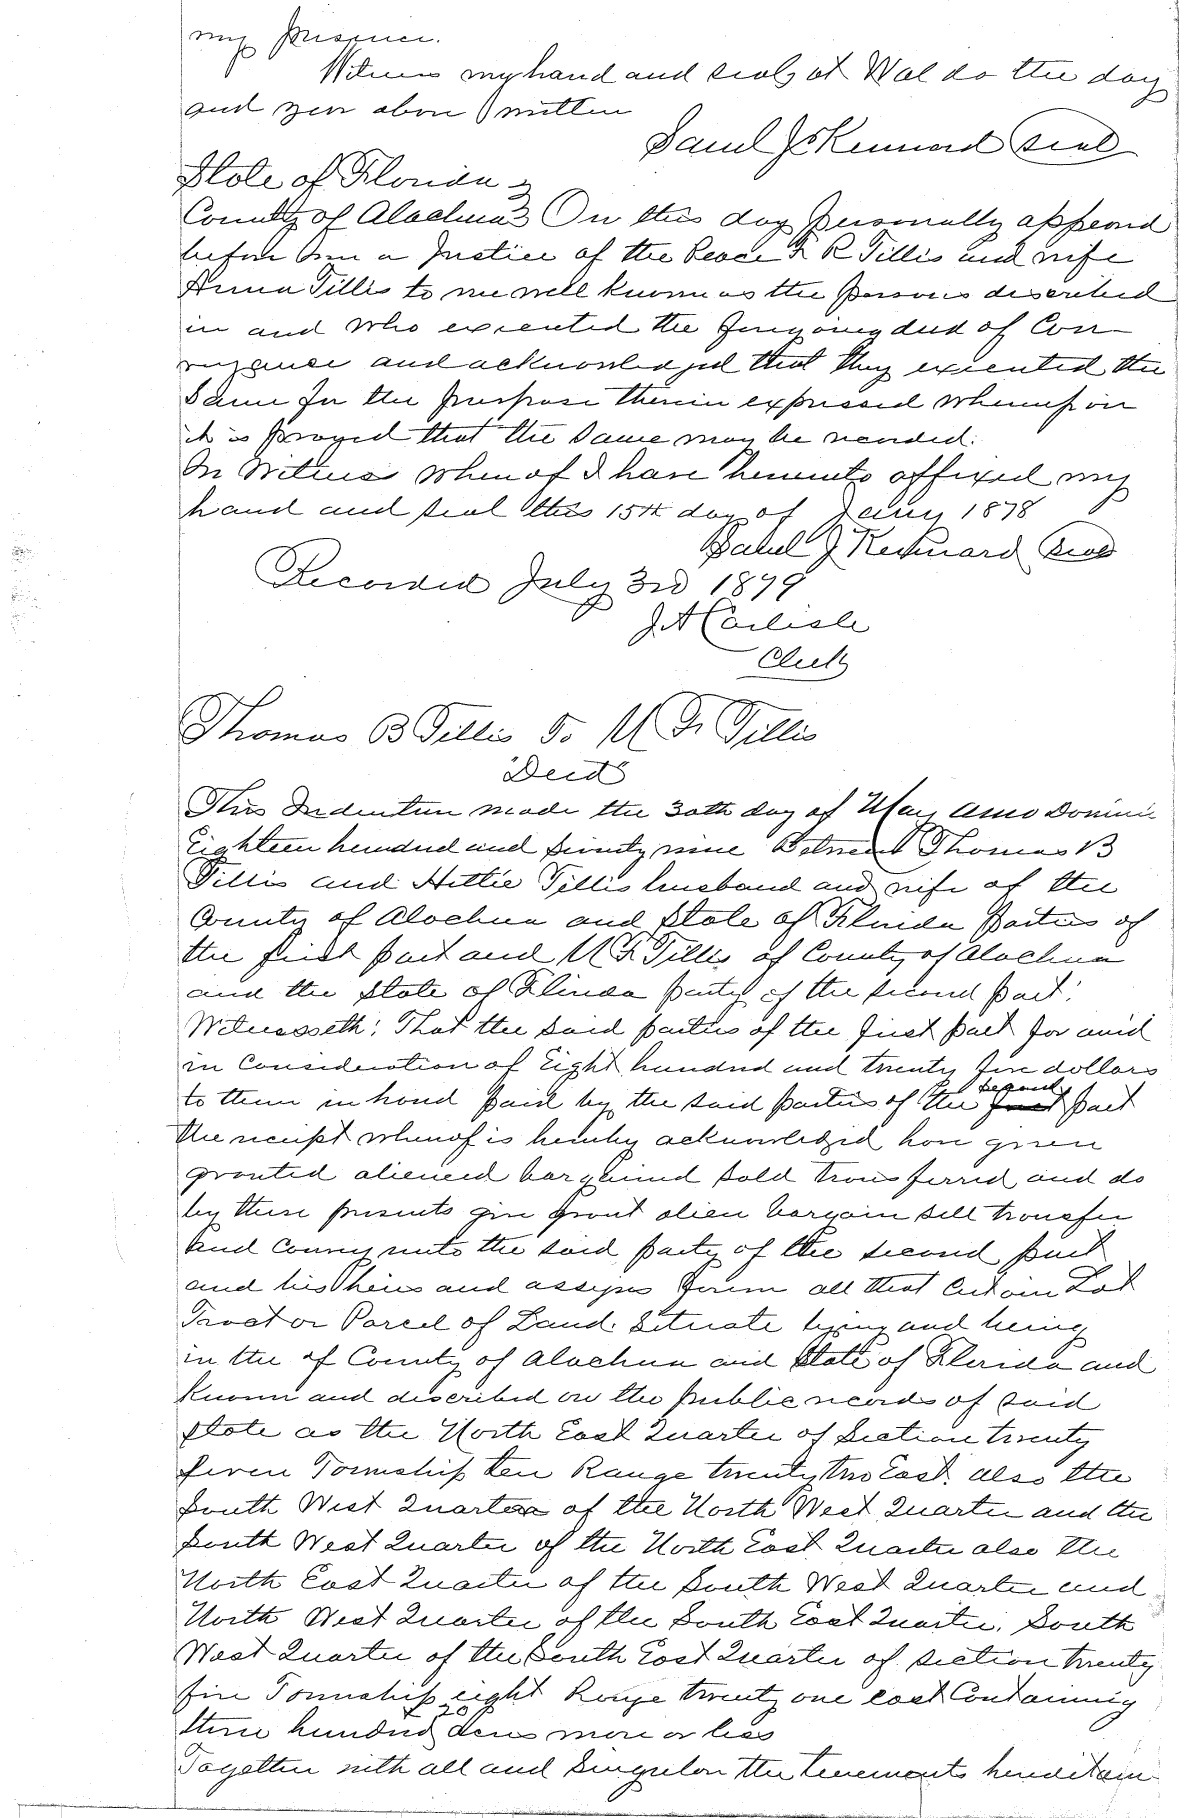 my presence.
Witness my hand and seal, at Waldo the day
and year above written
Saml J Kennard Seal
State of Florida
County of Alachua } On this day personally appeared
before me a Justice of the Peace F R Tillis and wife
Anna Tillis to me well known as the persons described
in and who executed the foregoing deed of Con-
veyance and acknowledged that they executed the
Same for the purpose therein expressed whereupon
it is prayed that the Same may be recorded.
In Witness whereof I have hereunto affixed my
hand and seal this 15th day of Jany 1878
Saml J Kennard Seal
Recorded July 3rd 1879
J A Carlisle
Clerk
Thomas B Tillis To M F Tillis
Deed
This Indenture made the 30th day of May Anno Domini
Eighteen hundred and Seventy nine Between Thomas B
Tillis and Hettie Tillis husband and wife of the
County of Alachua and State of Florida Parties of
the first part and M F Tillis of County of Alachua
and the State of Florida party of the second part:
Witnesseth: That the said parties of the first part for and
in Consideration of Eight hundred and twenty five dollars
to them in hand paid by the said parties of the second part
the receipt whereof is hereby acknowledged have given
granted aliened bargained sold transferred and do
by these presents give grant alien bargain sell transfer
and convey unto the said party of the second part
and his heirs and assigns forever all that Certain Lot
Tract or Parcel of Land Situate lying and being
in the of County of Alachua and State of Florida and
Known and described on the public records of said
State as the North East Quarter of Section twenty
Seven Township ten Range twenty two East, also the
South West Quarter of the North West Quarter and the
South West Quarter of the North East Quarter also the
North East Quarter of the South West Quarter and
North West Quarter of the South East Quarter, South
West Quarter of the South East Quarter of section twenty
five Township eight Range twenty one east Containing
three hundred & 20 acres more or less
Together with all and Singular the tenements hereditam-